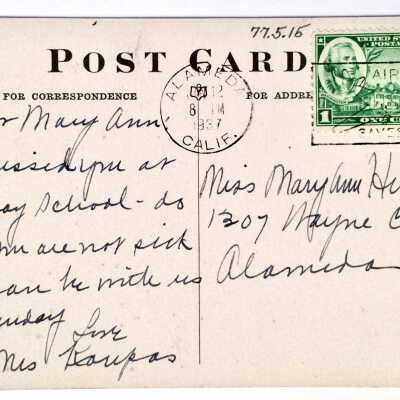 77.5.15
POST CARD
FOR CORRESPONDENCE
FOR ADDRE
ALAMEDA
12
8 M
1937
CALIF.
UNITED STATES
POSTA
1 ONE CE
AIR
SAVES
Mary Ann
missed you at
day School - do
you are not sick
can be with us
unday
Love
Mrs Koupas
Miss Mary Ann Hi
1207 Wayne C
Alameda